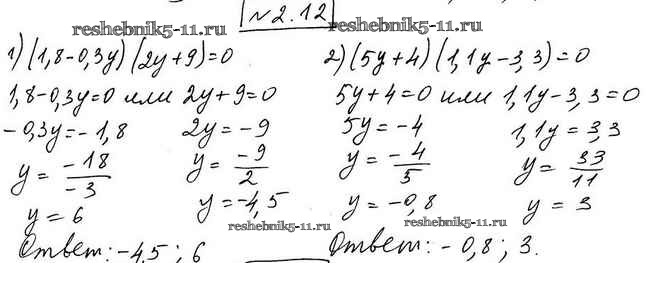 №2.12
reshebnik5-11.ru reshebnik5-11.ru
1) (1,8-0,3y)(2y+9)=0
1,8-0,3y=0 или 2y+9=0
-0,3y=-1,8 2y=-9
y = -18/-3 y = -9/2
y = 6 y = -4,5
Ответ: -4.5 ; 6
2) (5y+4)(1,1y-3,3)=0
5y+4=0 или 1,1y-3,3=0
5y = -4 1,1y = 3,3
y = -4/5 y = 33/11
y = -0,8 y = 3
reshebnik5-11.ru reshebnik5-11.ru
Ответ: -0,8 ; 3.